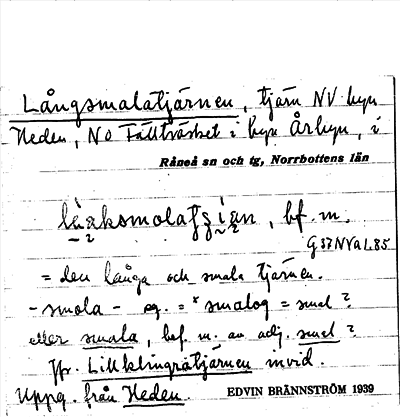 Långsmalatjärnen, tjärn NV. byn
Heden, NO Fällträsket i byn Årbyn, i
Råneå sn och tg, Norrbottens län
bf. m.
G37NVaL85
= den långa och smala tjärnen.
- smola - eg. = *smalog = smal?
eller smala, bef. m. av adj. smal?
Jfr. Lillklingrätjärnen invid.
Uppg. från Heden. EDVIN BRÄNNSTRÖM 1939